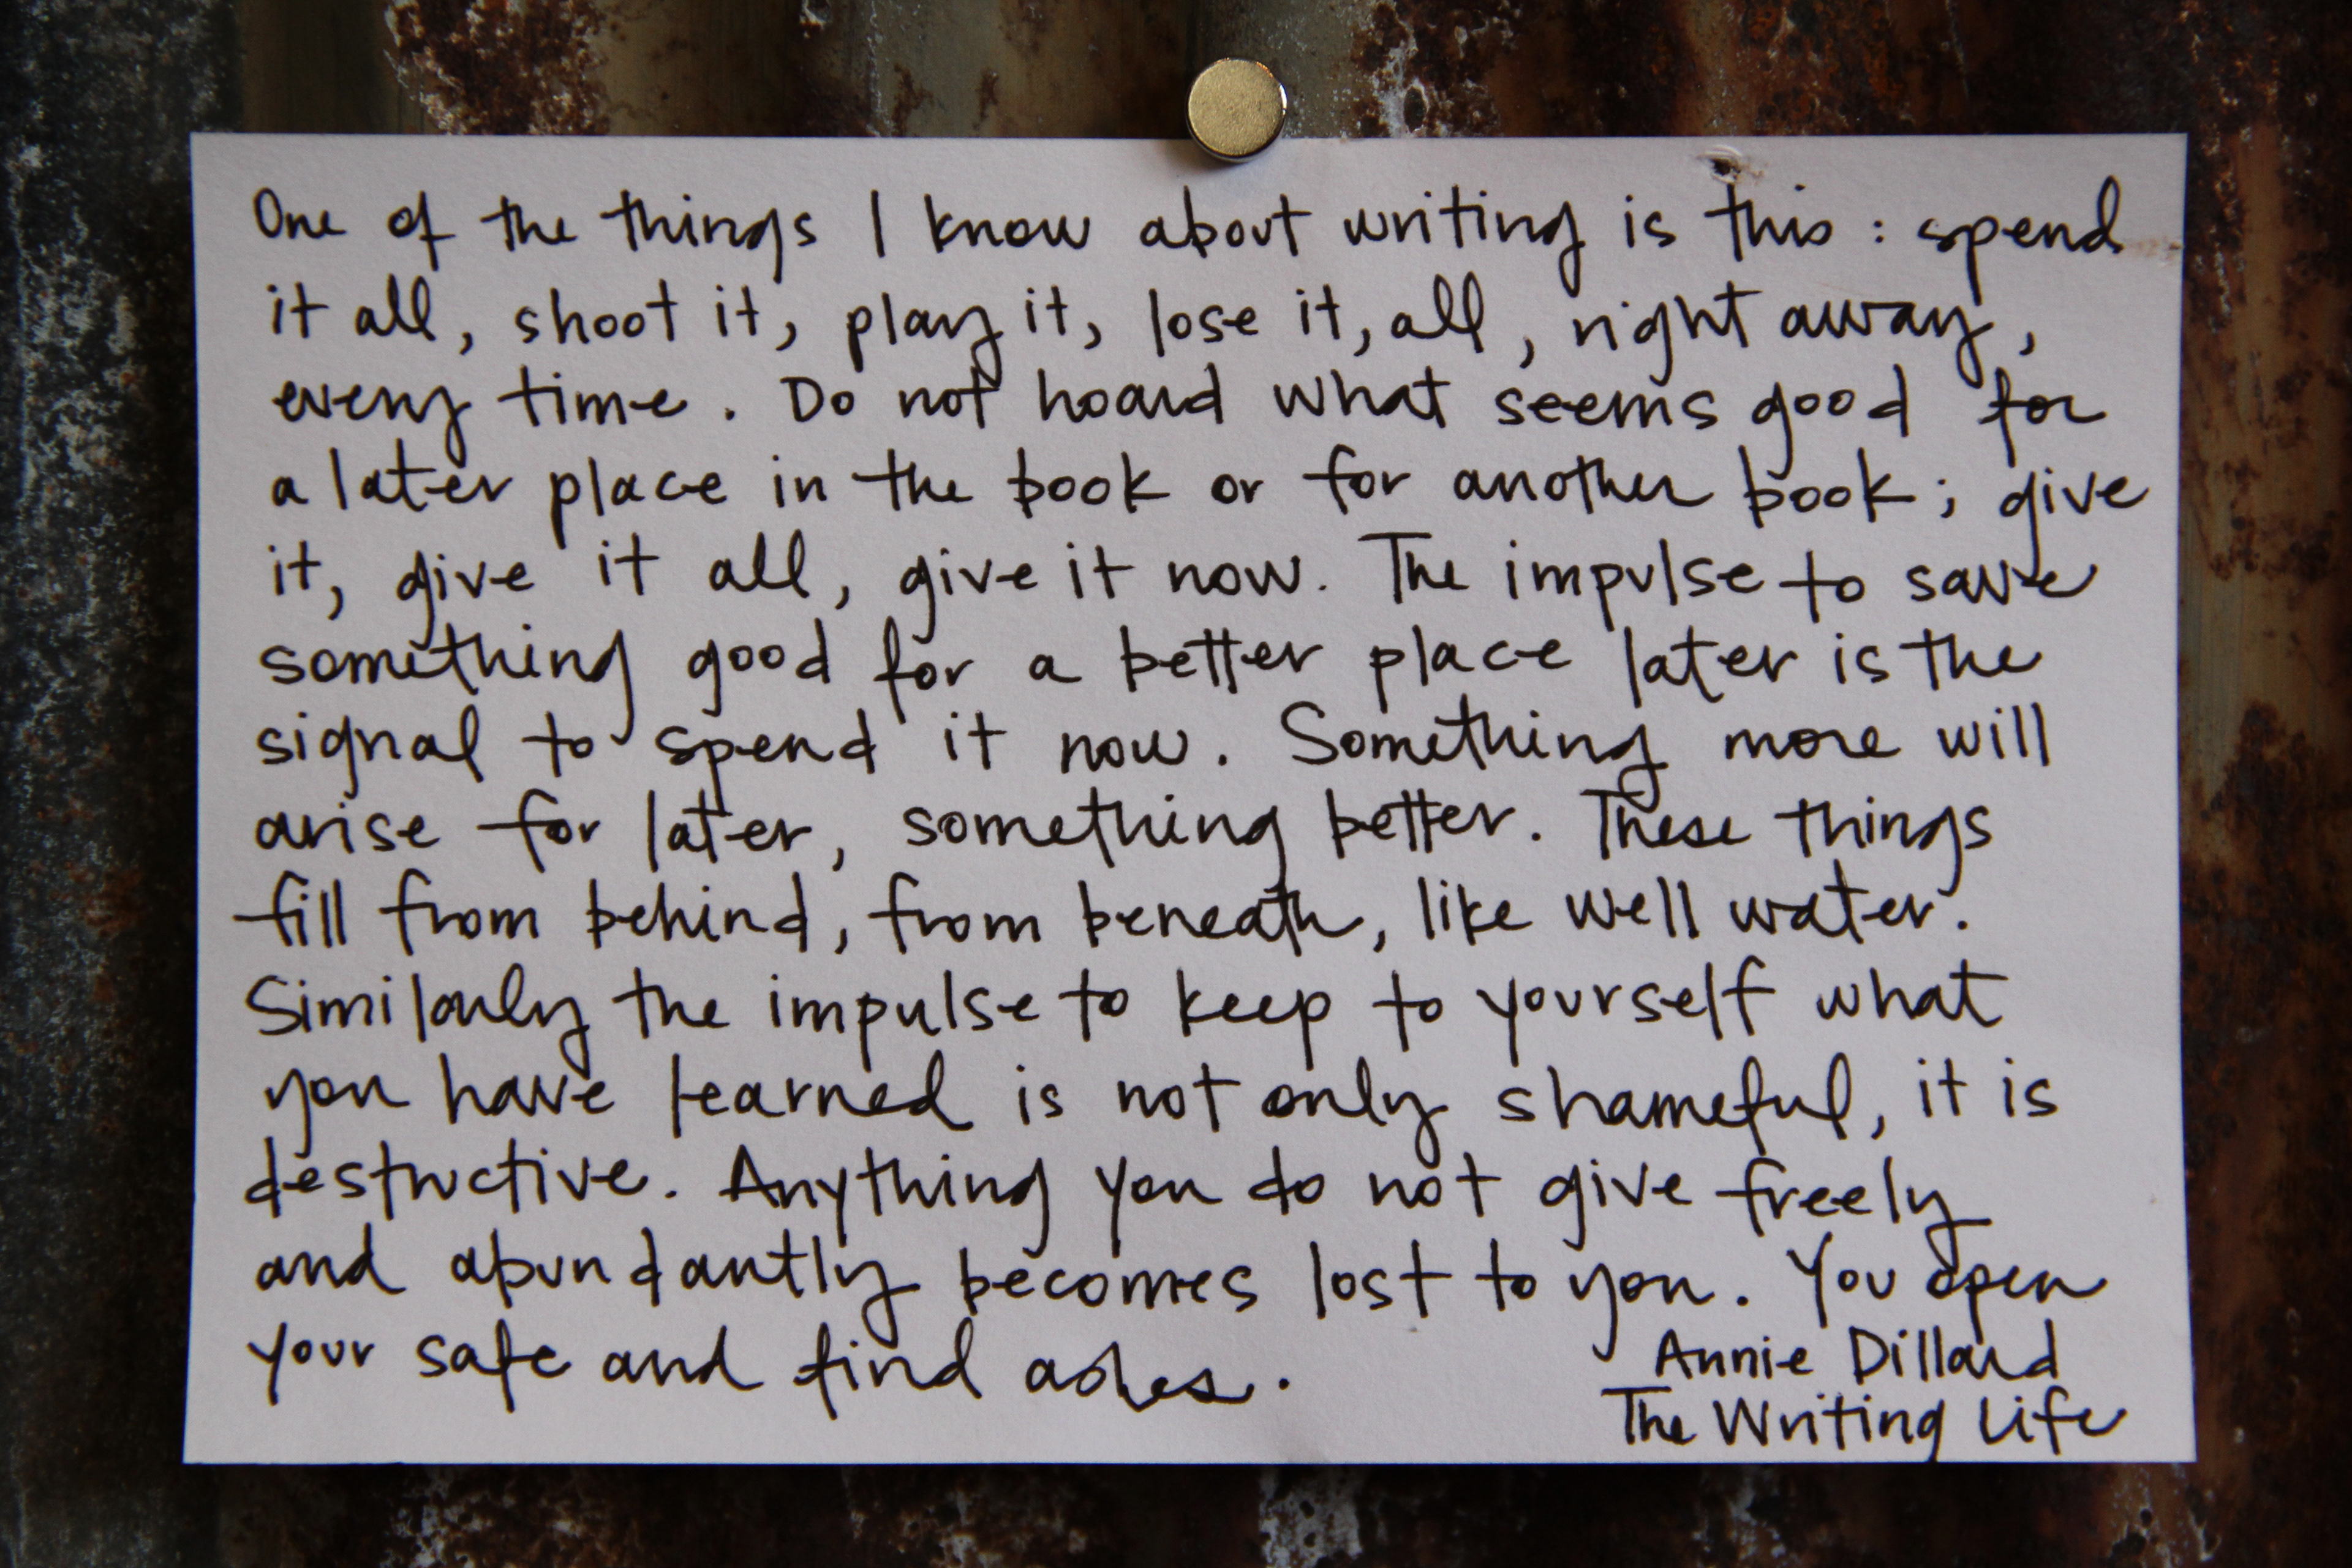 One of the things I know about writing is this : spend
it all, shoot it, play it, lose it, all, right away,
every time. Do not hoard what seems good for
a later place in the book or for another book; give
it, give it all, give it now. The impulse to save
something good for a better place later is the
signal to spend it now. Something more will
arise for later, something better. These things
fill from behind, from beneath, like well water.
Similarly the impulse to keep to yourself what
you have learned is not only shameful, it is
destructive. Anything you do not give freely
and abundantly becomes lost to you. You open
your safe and find ashes.
Annie Dillard
The Writing Life